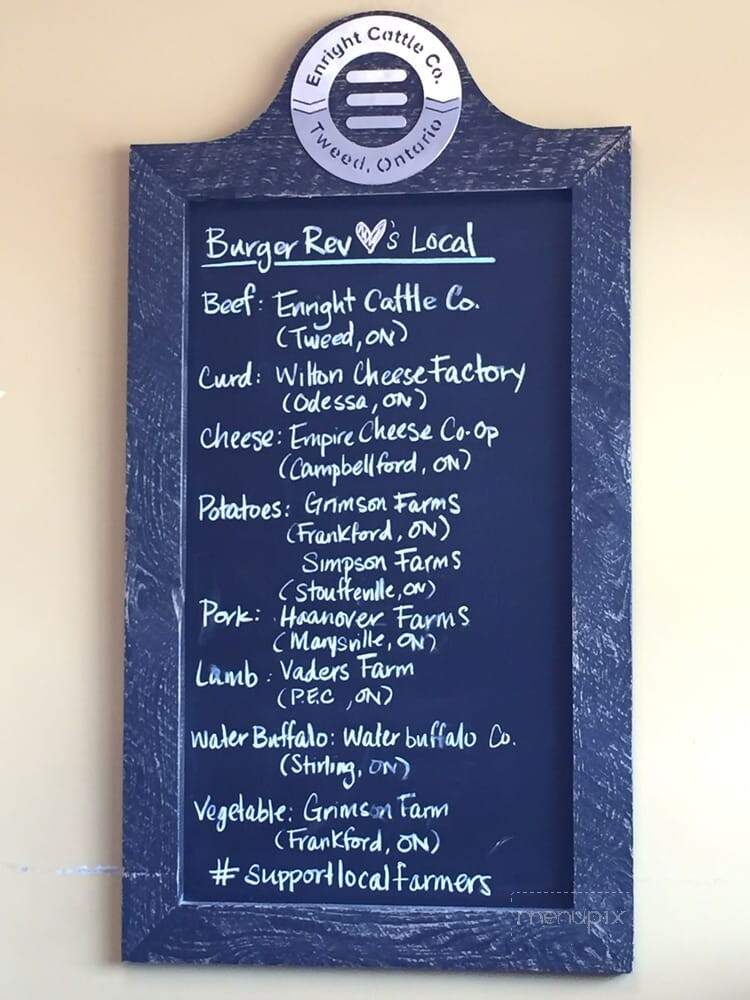 Enright Cattle Co.
Tweed, Ontario
Burger Rev ♡'s Local
Beef: Enright Cattle Co.
(Tweed, ON)
Curd: Wilton Cheese Factory
(Odessa, ON)
Cheese: Empire Cheese Co-Op
(Campbellford, ON)
Potatoes: Grimson Farms
(Frankford, ON)
Simpson Farms
(Stouffenville, ON)
Pork: Haanover Farms
(Marysville, ON)
Lamb: Vaders Farm
(P.E.C, ON)
Water Buffalo: Water buffalo Co.
(Stirling, ON)
Vegetable: Grimson Farm
(Frankford, ON)
# supportlocalfarmers
menupix